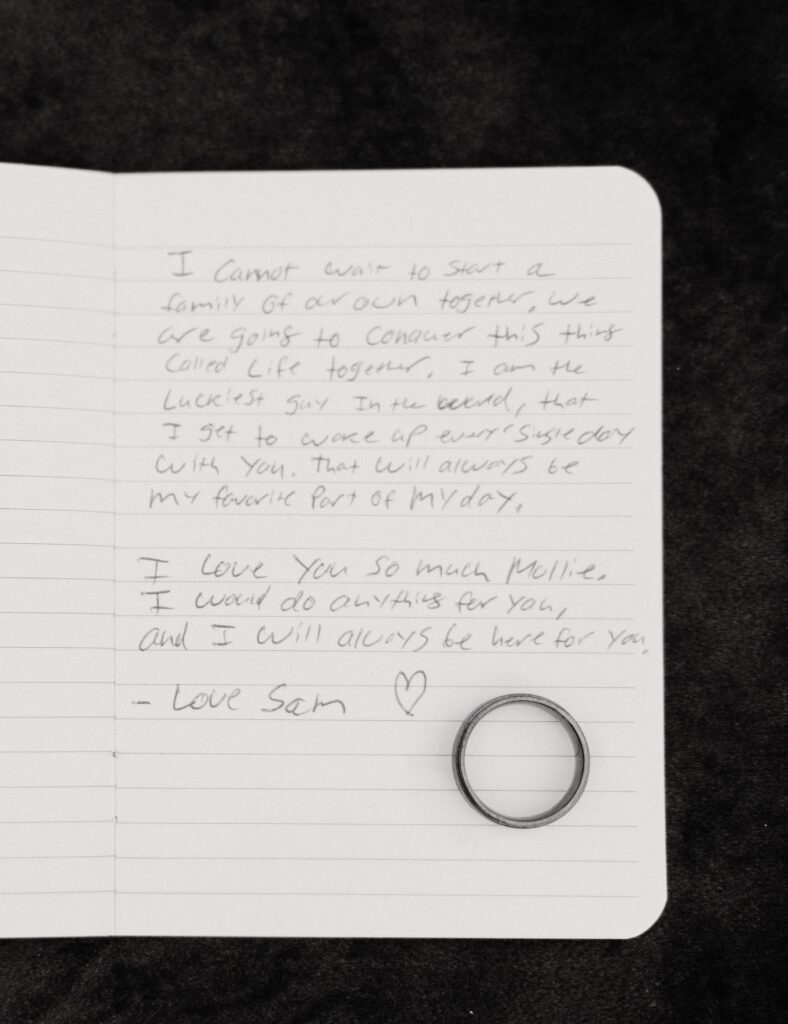 I Cannot wait to start a
family of our own together. We
are going to Conquer this thing
Called Life together. I am the
Luckiest guy In the world, that
I get to wake up every single day
With You. That will always be
my favorite Part of My day.
I Love You so much Mollie.
I would do anything for you,
and I will always be here for You.
- Love Sam ♡